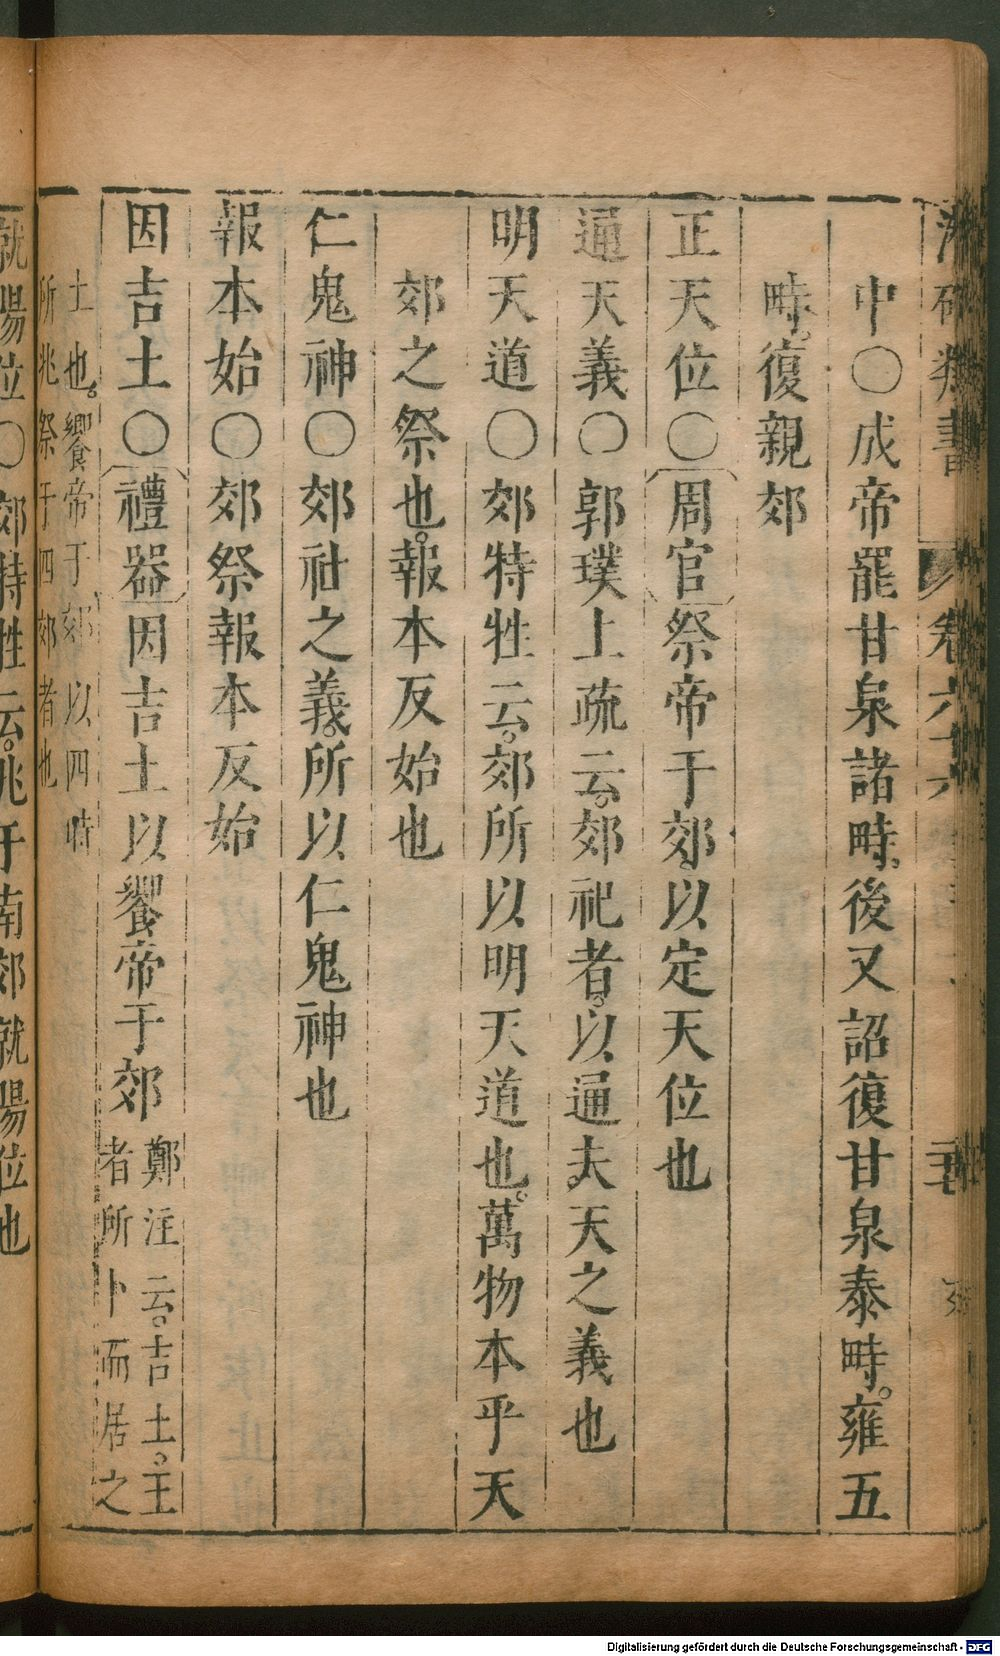 卷六十六
中〇成帝罷甘泉諸畤。後又詔復甘泉泰畤。雍五
畤。復親郊
正天位〇周官祭帝于郊。以定天位也
通天義〇郭璞上疏云。郊祀者。以通夫天之義也
明天道〇郊特牲云。郊所以明天道也。萬物本乎天
郊之祭也。報本反始也
仁鬼神〇郊社之義。所以仁鬼神也
報本始〇郊祭報本反始
因吉土〇禮器因吉土以饗帝于郊
鄭注云。吉土。王
者所卜而居之
土也。饗帝于郊以四時
所兆祭于四郊者也
就陽位〇郊特牲云。兆于南郊就陽位也
Digitalisierung gefördert durch die Deutsche Forschungsgemeinschaft - DFG